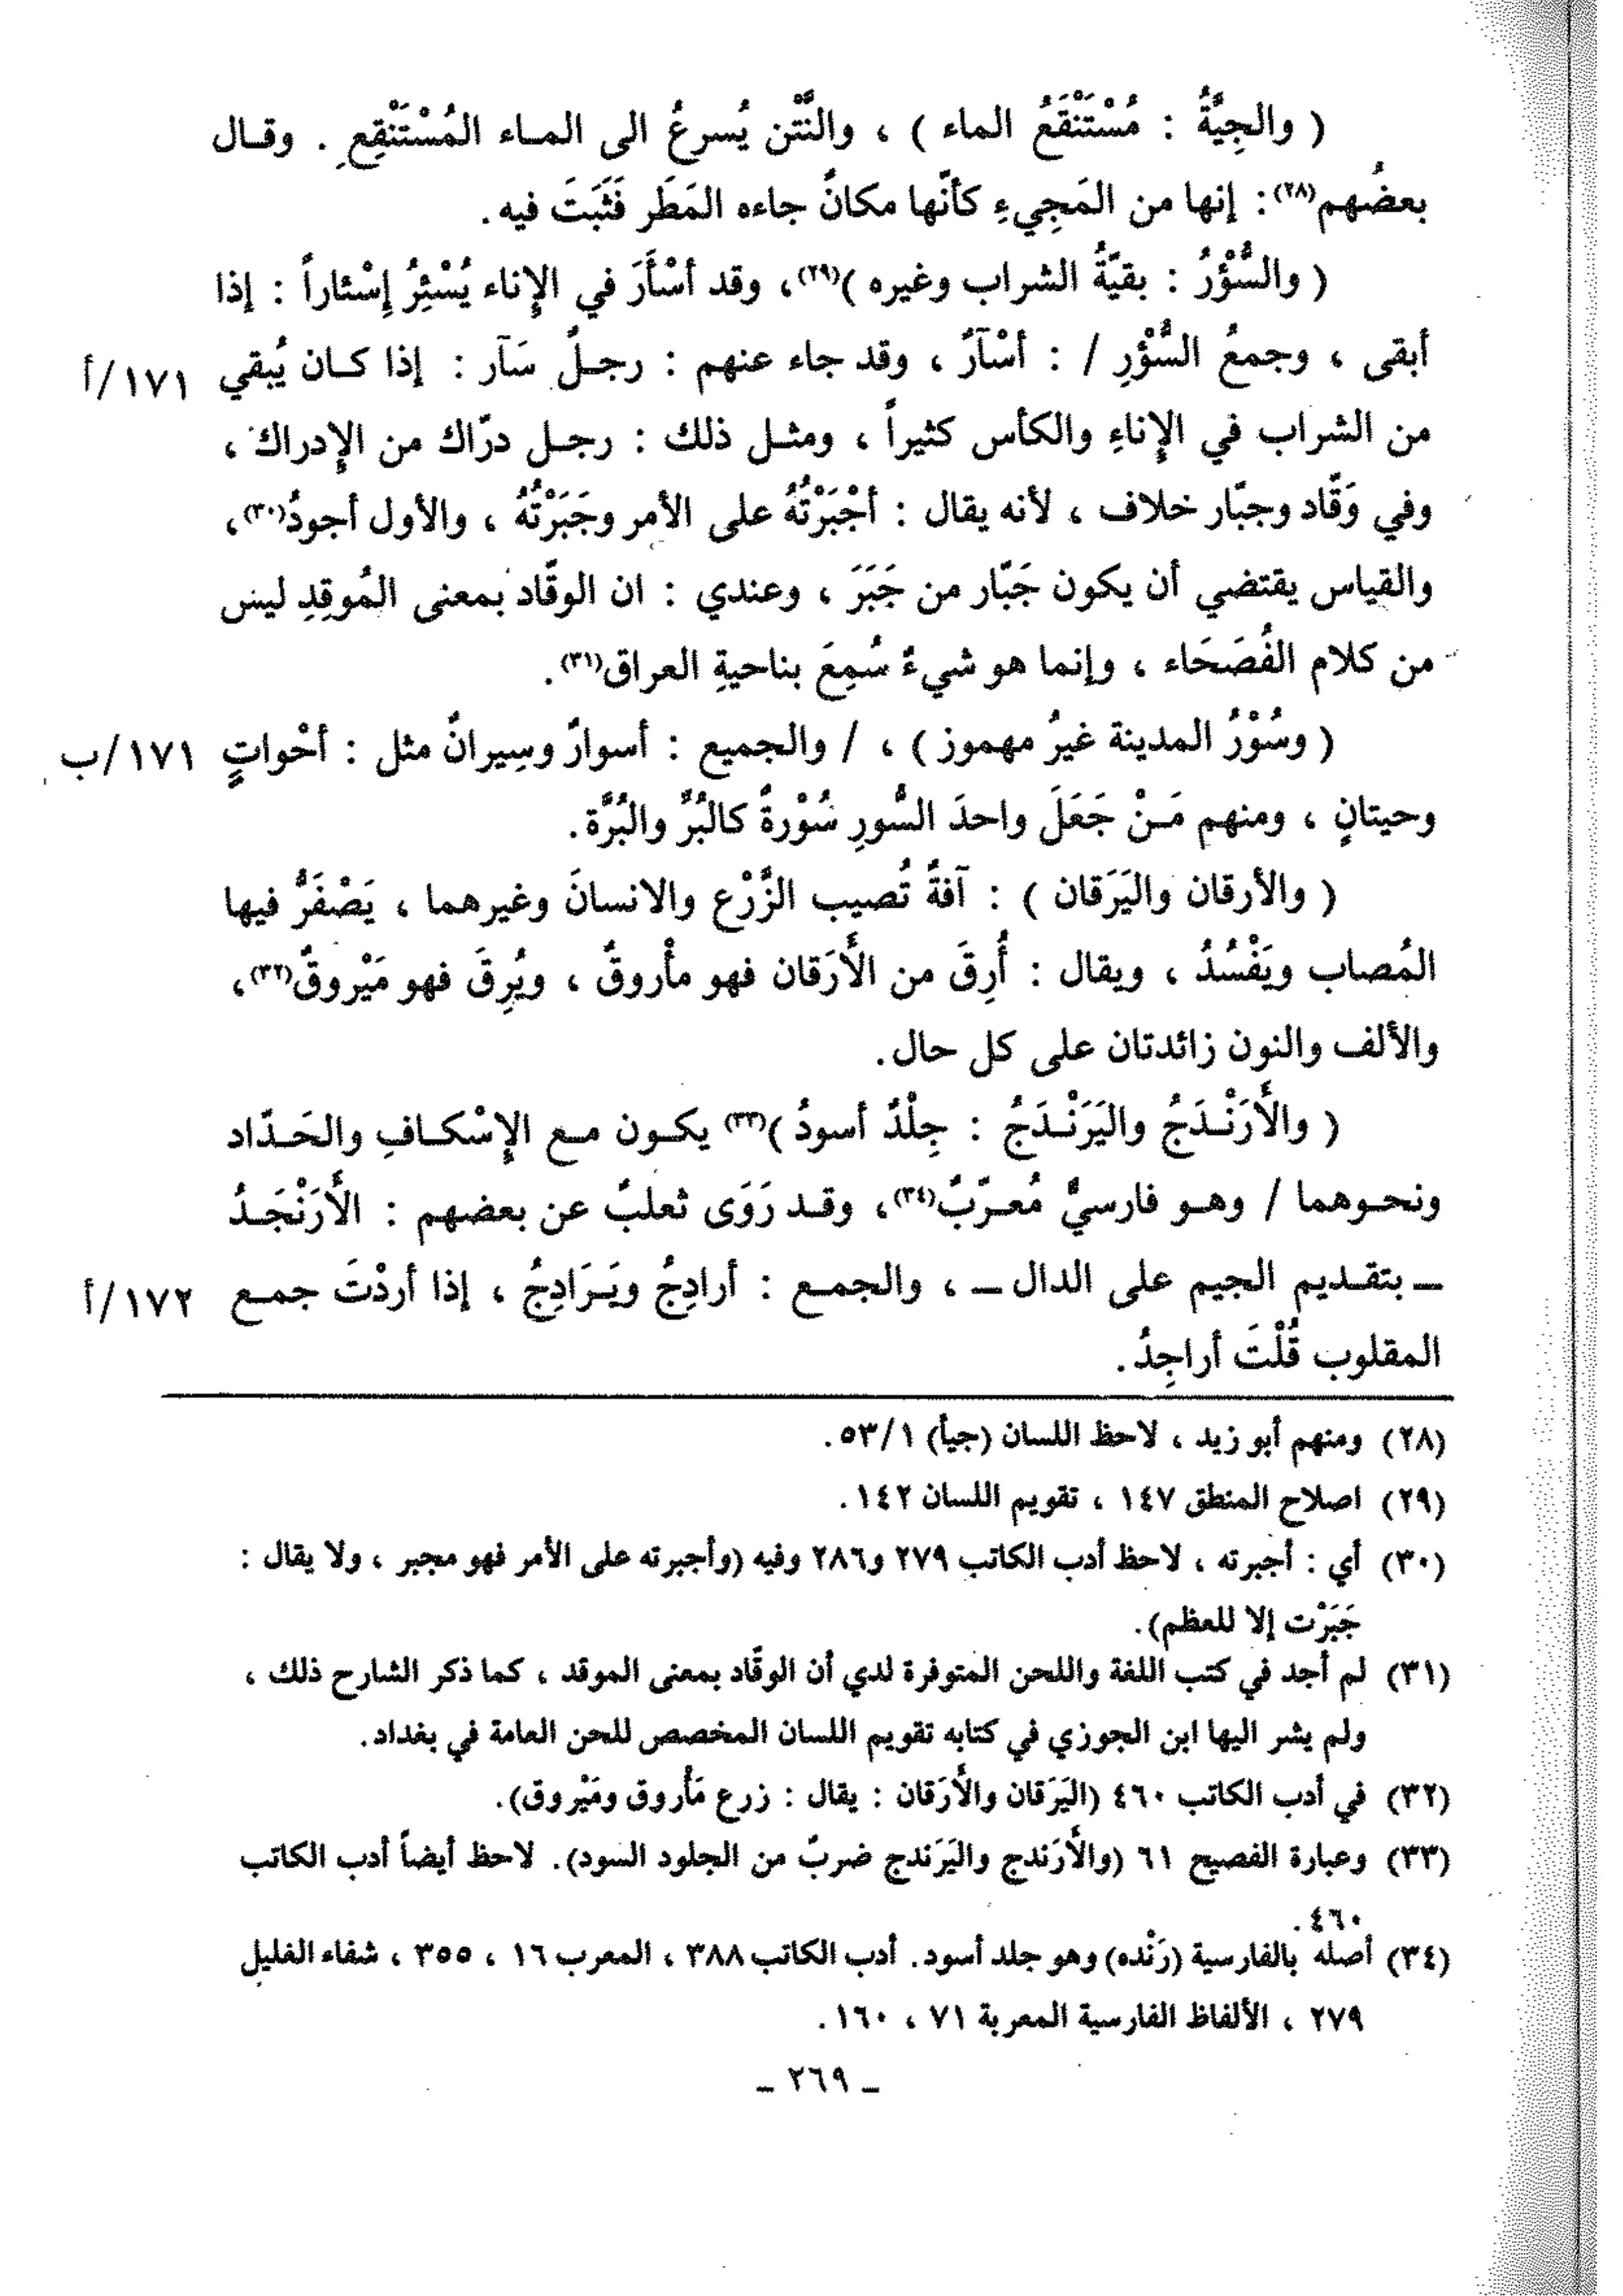 ( والجِيَّةُ : مُسْتَنْقَعُ الماء ) ، والنَّتْن يُسرعُ الى المـاء المُسْتَنْقِعِ . وقـال
بعضُهم(٢٨): إنها من المَجِيءِ كأنّها مكانٌ جاءه المَطَر فَثَبَتَ فيه.
( والسُّؤْرُ : بقيّةُ الشراب وغيره )(٢٩)، وقد أسْأَرَ في الإناء يُسْئِرُ إسْئاراً : إذا
أبقى ، وجمعُ السُّؤْرِ / : أسْآرٌ ، وقد جاء عنهم : رجـلٌ سَآر : إذا كـان يُبقي ١٧١/أ
من الشراب في الإناءِ والكأس كثيراً ، ومثـل ذلك : رجـل درّاك من الإدراك ،
وفي وَقّاد وجبّار خلاف ، لأنه يقال : أجْبَرْتُهُ على الأمر وجَبَرْتُهُ ، والأول أجودُ(٣٠)،
والقياس يقتضي أن يكون جَبّار من جَبَرَ ، وعندي : ان الوقّاد بمعنى المُوقِدِ ليس
من كلام الفُصَحَاء ، وإنما هو شيءٌ سُمِعَ بناحيةِ العراق(٣١).
( وسُوْرُ المدينة غيرُ مهموز ) ، / والجميع : أسوارٌ وسِيرانٌ مثل : أحْواتٍ ١٧١/ب
وحيتانٍ ، ومنهم مَـنْ جَعَلَ واحدَ السُّورِ سُوْرةً كالبُرِّ والبُرَّة.
( والأرقان واليَرَقان ) : آفةٌ تُصيب الزَّرْع والانسانَ وغيرهما ، يَصْفَرُّ فيها
المُصاب ويَفْسُدُ ، ويقال : أُرِقَ من الأَرَقان فهو مأْروقٌ ، ويُرِقَ فهو مَيْروقٌ(٣٢)،
والألف والنون زائدتان على كل حال.
( والأَرَنْـدَجُ واليَرَنْـدَجُ : جِلْدٌ أسودُ )(٣٣) يكـون مـع الإسْكـافِ والحَـدّاد
ونحـوهما / وهـو فارسيٌّ مُعـرّبٌ(٣٤)، وقـد رَوَى ثعلبٌ عن بعضهم : الأَرَنْجَـدُ
ــ بتقـديم الجيم على الدال ــ ، والجمـع : أرادِجُ ويَـرَادِجُ ، إذا أردْتَ جمـع ١٧٢/أ
المقلوب قُلْتَ أراجِدُ.
(٢٨) ومنهم أبو زيد ، لاحظ اللسان (جيأ) ٥٣/١.
(٢٩) اصلاح المنطق ١٤٧ ، تقويم اللسان ١٤٢.
(٣٠) أي : أجبرته ، لاحظ أدب الكاتب ٢٧٩ و٢٨٦ وفيه (وأجبرته على الأمر فهو مجبر ، ولا يقال :
جَبَرْت إلا للعظم).
(٣١) لم أجد في كتب اللغة واللحن المتوفرة لدي أن الوقّاد بمعنى الموقد ، كما ذكر الشارح ذلك ،
ولم يشر اليها ابن الجوزي في كتابه تقويم اللسان المخصص للحن العامة في بغداد.
(٣٢) في أدب الكاتب ٤٦٠ (اليَرَقان والأَرَقان : يقال : زرع مَأْروق ومَيْروق).
(٣٣) وعبارة الفصيح ٦١ (والأَرَندج واليَرَندج ضربٌ من الجلود السود). لاحظ أيضاً أدب الكاتب
٤٦٠.
(٣٤) أصله بالفارسية (رَنْده) وهو جلد أسود. أدب الكاتب ٣٨٨ ، المعرب ١٦ ، ٣٥٥ ، شفاء الغليل
٢٧٩ ، الألفاظ الفارسية المعربة ٧١ ، ١٦٠.
ـ ٢٦٩ ـ